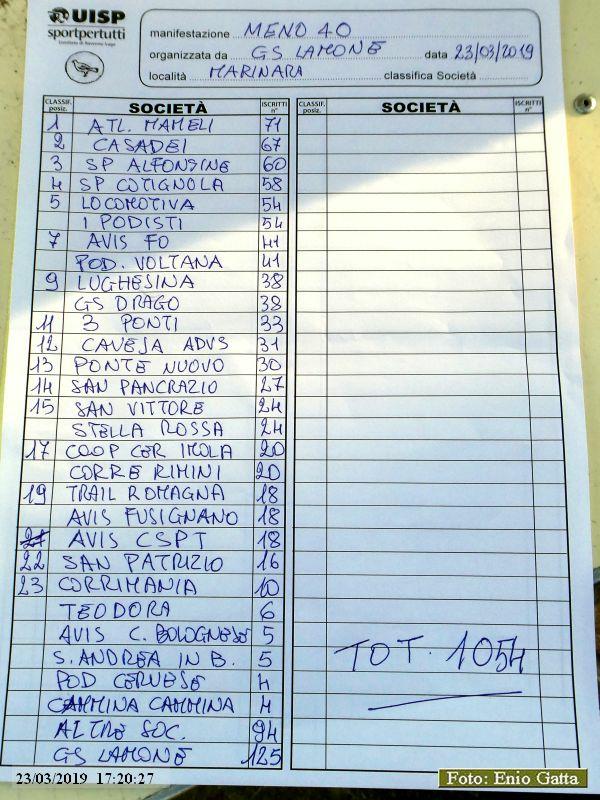 UISP
sportpertutti
manifestazione MENO 40
organizzata da GS LAMONE data 23/03/2019
località MARINARA classifica Società
CLASSIF. posiz. SOCIETÀ ISCRITTI n°
1 ATL. MAMELI 71
2 CASADEI 67
3 SP ALFONSINE 60
4 SP COTIGNOLA 58
5 LOCOMOTIVA 54
I PODISTI 54
7 AVIS FO 41
POD. VOLTANA 41
9 LUGHESINA 38
GS DRAGO 38
11 3 PONTI 33
12 CAVEJA ADVS 31
13 PONTE NUOVO 30
14 SAN PANCRAZIO 27
15 SAN VITTORE 24
STELLA ROSSA 24
17 COOP CER IMOLA 20
CORRE RIMINI 20
19 TRAIL ROMAGNA 18
AVIS FUSIGNANO 18
21 AVIS CSPT 18
22 SAN PATRIZIO 16
23 CORRIMANIA 10
TEODORA 6
AVIS C. BOLOGNESE 5
S. ANDREA IN B. 5
POD CERVESE 4
CAMMINA CAMMINA 4
ALTRE SOC. 94
GS LAMONE 125
CLASSIF. posiz. SOCIETÀ ISCRITTI n°
TOT. 1054
23/03/2019 17:20:27
Foto: Enio Gatta